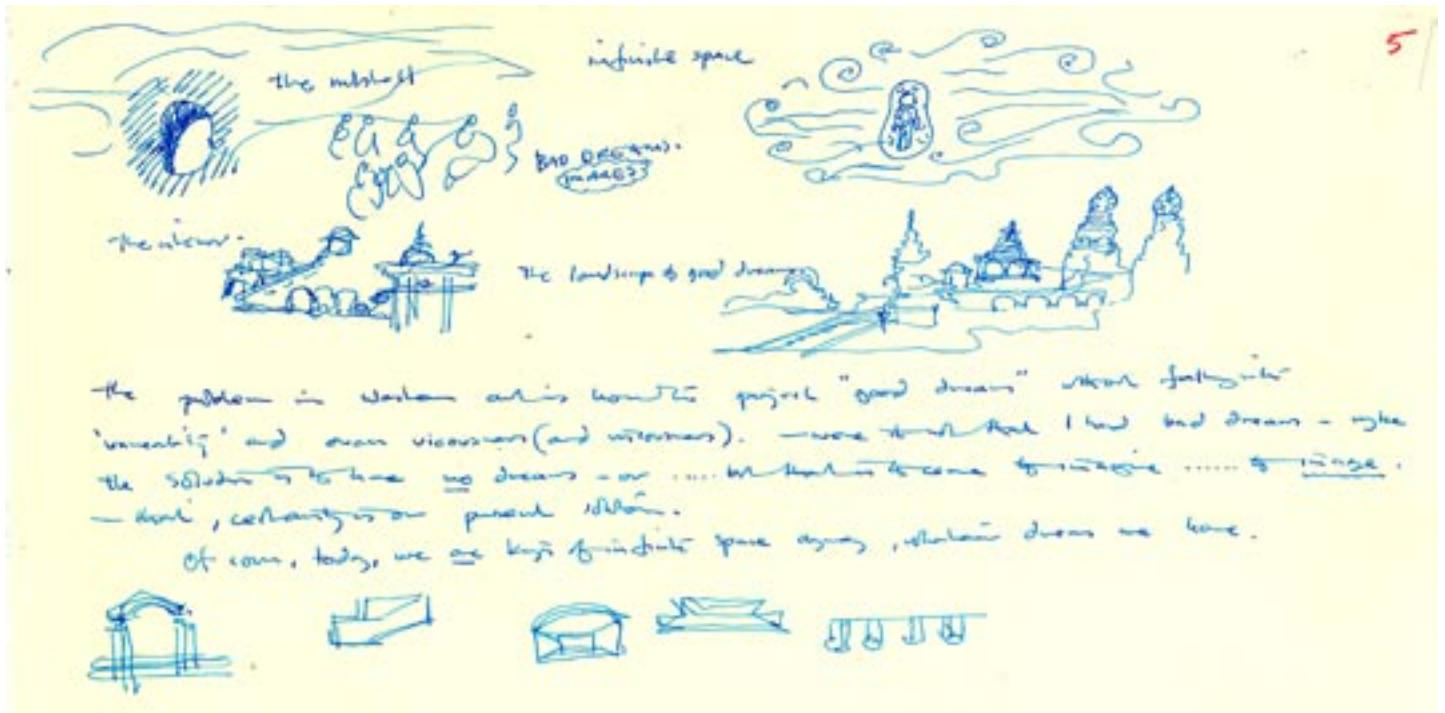 5
infinite space
the nutshell
BAD DREAMS.
IMAGES?
The
The landscape of good dreams
The problem in western art is how to project "good dreams" without falling into
" and even viciousness (and). — were it not that I had bad dreams – maybe
the solution is to have no dreams – or ..... but that is to cease to imagine ...... to image.
— that, certainly is our present
Of course, today, we are kings of infinite space anyway, whatever dreams we have.